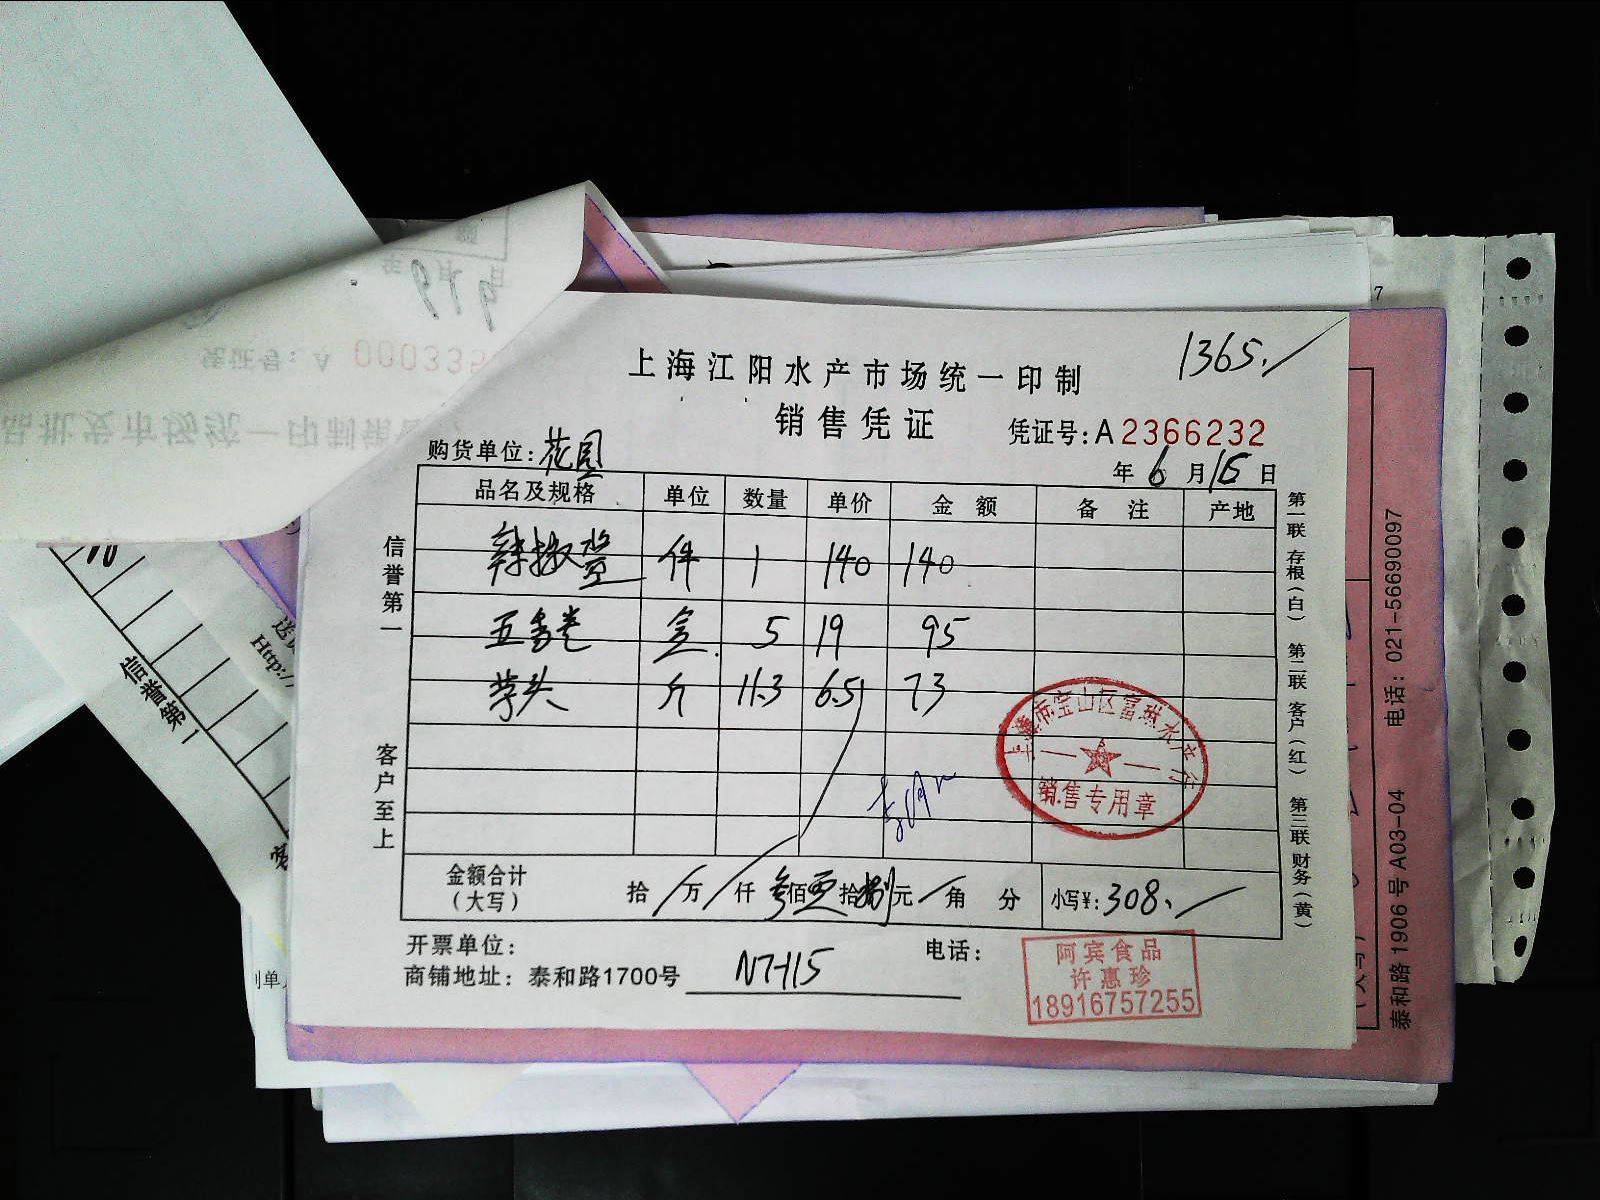 1365.
上海江阳水产市场统一印制
销售凭证
凭证号:A 2366232
购货单位:花园
年 6 月 15 日
品名及规格 单位 数量 单价 金额 备注 产地
辣椒 件 1 140 140
五香卷 盒 5 19 95
芋头 斤 11.3 6.5 73
信誉第一
客户至上
上海市宝山区富琳水产行
销售专用章
金额合计(大写) 拾 万 仟 叁佰 拾捌元 角 分 小写¥:308.
开票单位: 电话:
商铺地址:泰和路1700号 N7-115
阿宾食品
许惠珍
18916757255
第一联 存根(白) 第二联 客户(红) 第三联 财务(黄)
泰和路 1906 号 A03-04 电话:021-56690097
凭证号:A 000335
品批发市场统一印制销
年 月 日
信誉第一
Http://
制单